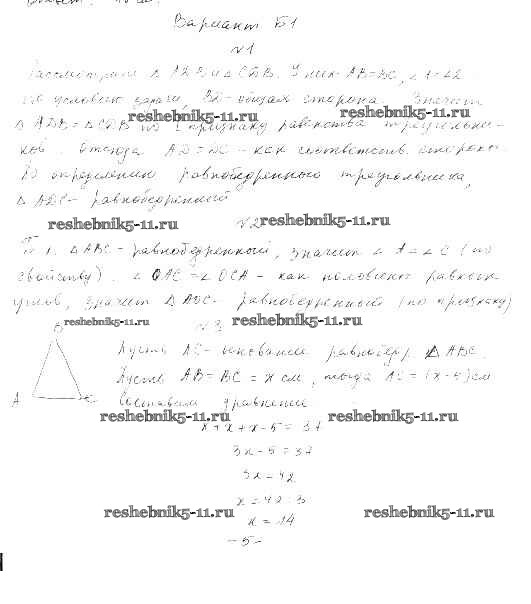 Вариант Б1
№1
Рассмотрим △ АДВ и △ СДВ. У них АВ=ВС, ∠1=∠2
по условию задачи, ВД-общая сторона. Значит
reshebnik5-11.ru reshebnik5-11.ru
△ АДВ = △СДВ по I признаку равенства треугольни-
ков. Отсюда АД=ДС - как соответств. стороны.
По определению равнобедренного треугольника,
△ АДС- равнобедренный
reshebnik5-11.ru №2 reshebnik5-11.ru
Т.к. △АВС-равнобедренный, значит ∠ А=∠ С (по
свойству). ∠ ОАС=∠ ОСА - как половинки равных
углов, значит △ АОС- равнобедренный (по признаку)
reshebnik5-11.ru №3 reshebnik5-11.ru
Пусть АС-основание равнобедр. △ АВС.
Пусть АВ=ВС=х см, тогда АС=(х-5)см
А С Составим уравнение
reshebnik5-11.ru reshebnik5-11.ru
х+х+х-5=37
3х-5=37
3х=42
х=42:3
reshebnik5-11.ru reshebnik5-11.ru
х=14
-5-